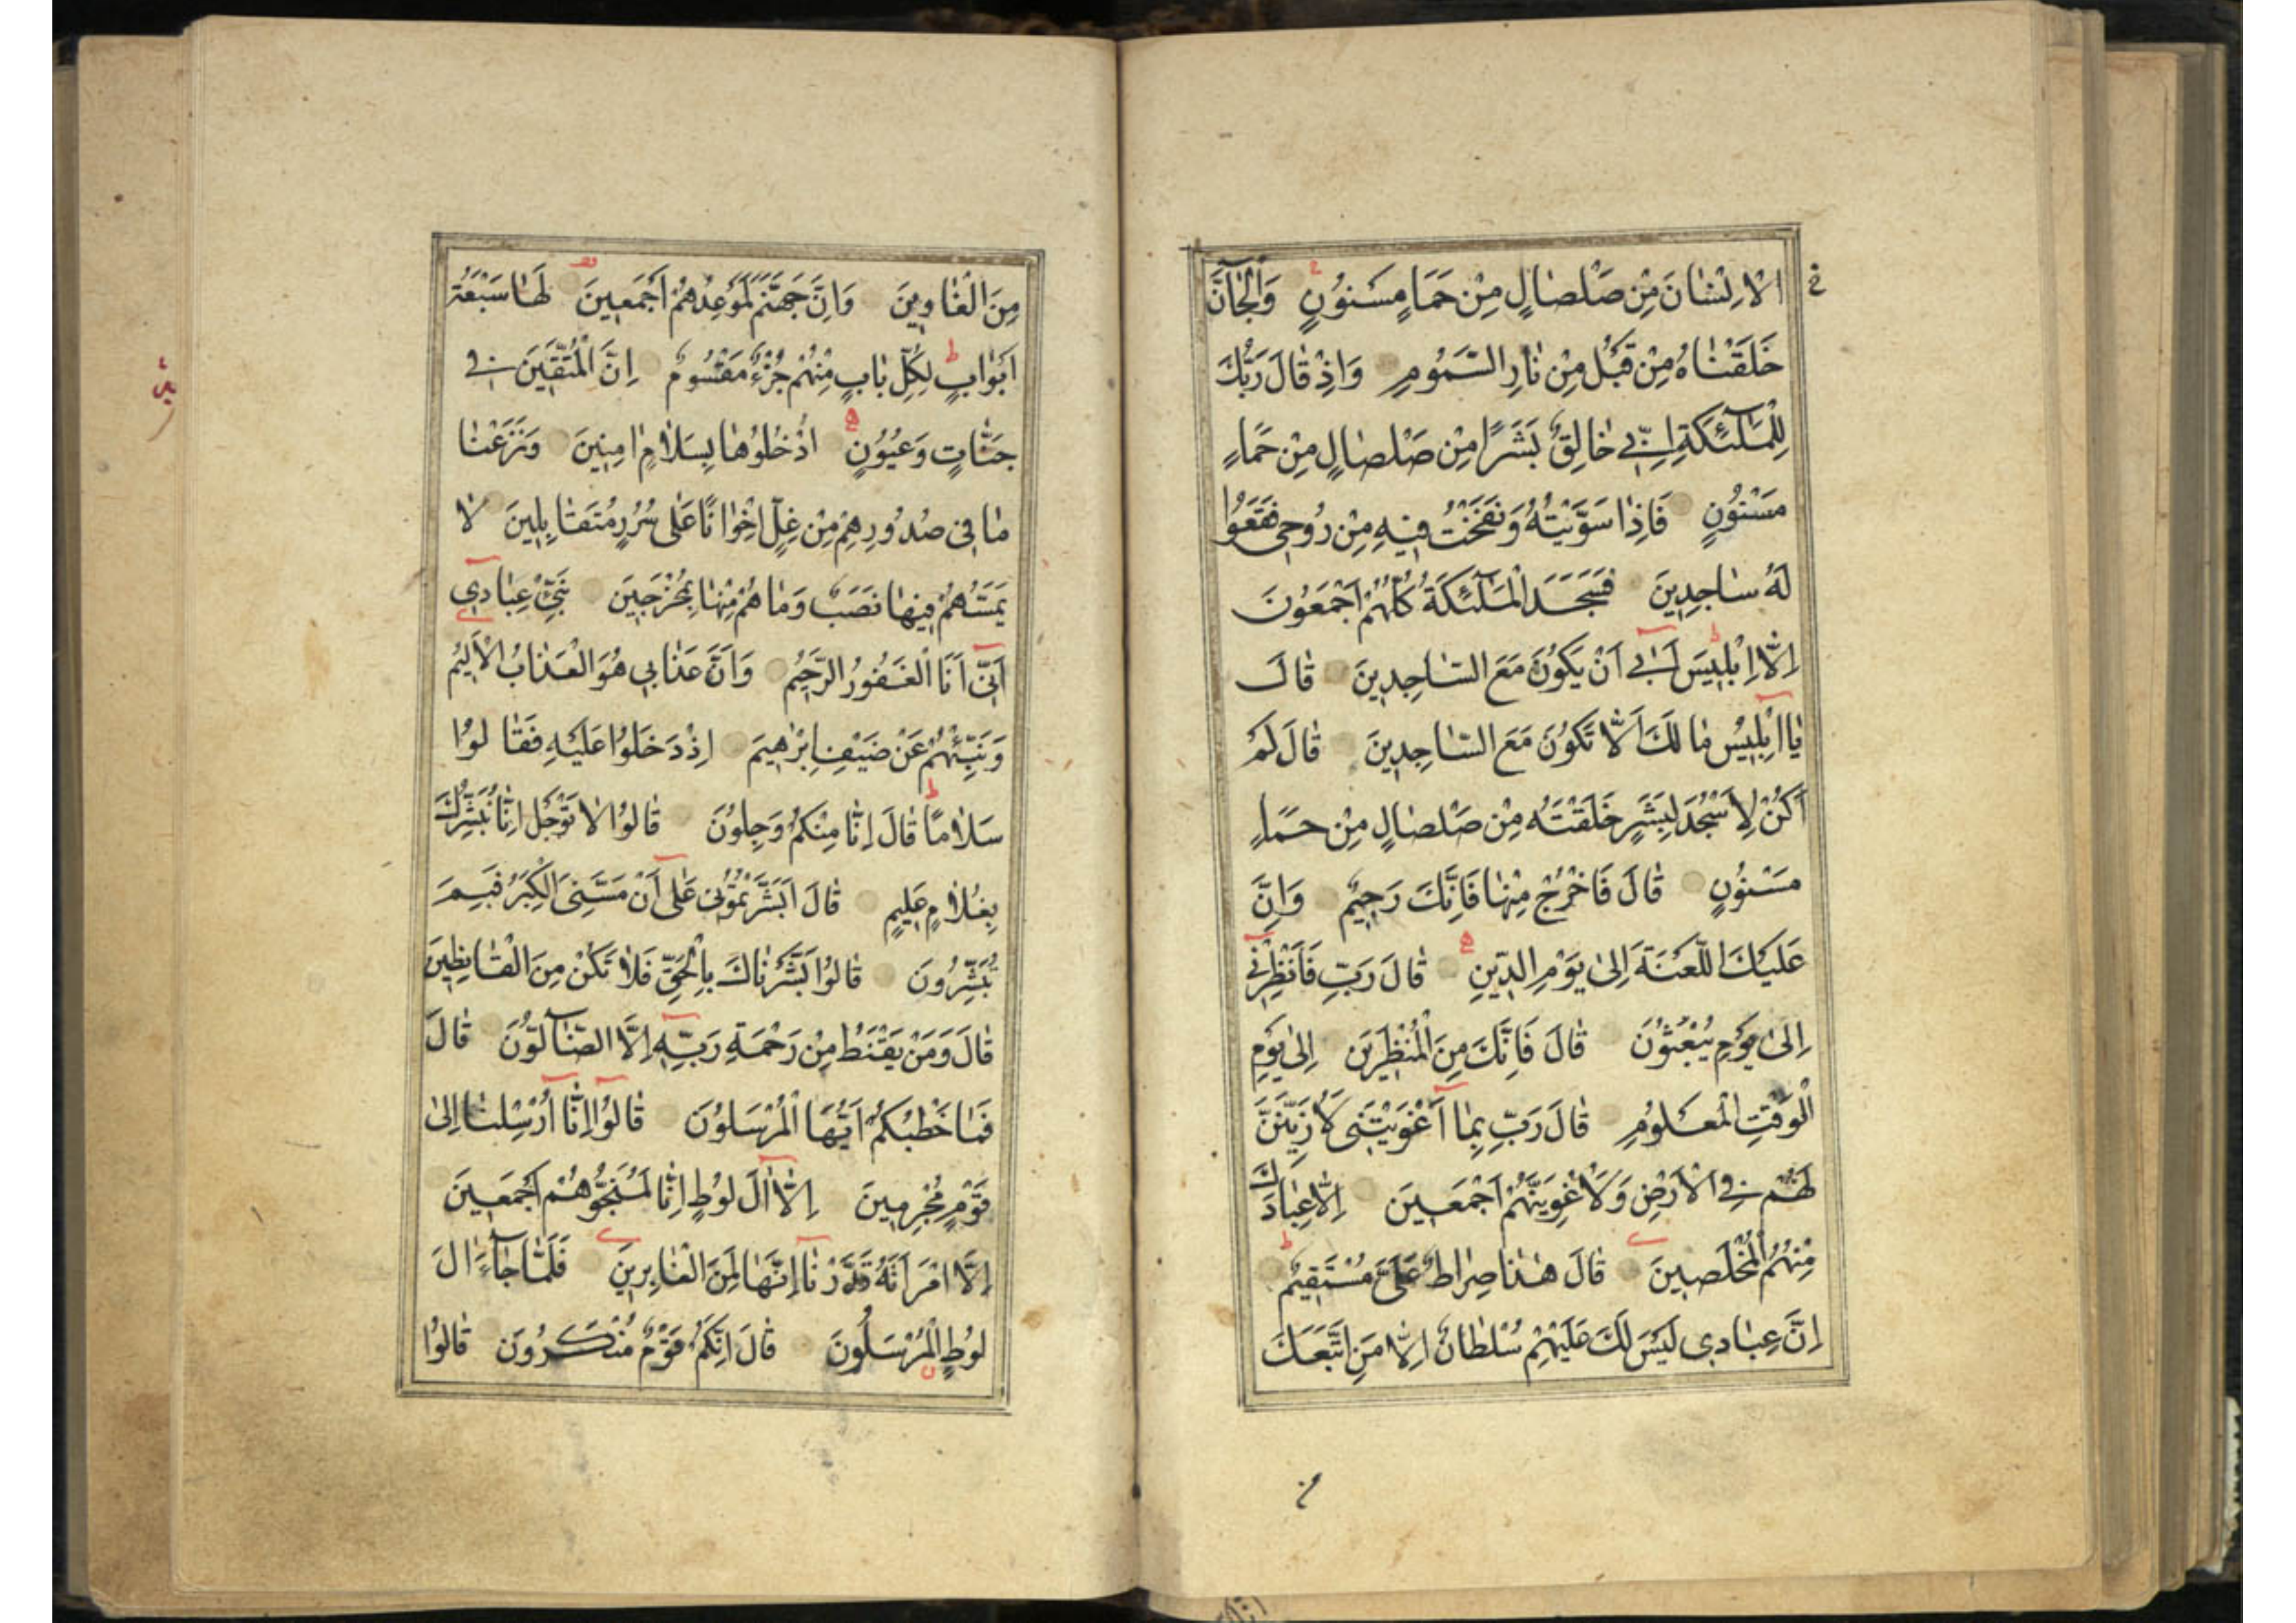 الْاِنْسَانَ مِنْ صَلْصَالٍ مِنْ حَمَاٍ مَسْنُونٍ وَالْجَآنَّ
خَلَقْنَاهُ مِنْ قَبْلُ مِنْ نَارِ السَّمُومِ وَاِذْ قَالَ رَبُّكَ
لِلْمَلٰٓئِكَةِ اِنِّي خَالِقٌ بَشَرًا مِنْ صَلْصَالٍ مِنْ حَمَاٍ
مَسْنُونٍ فَاِذَا سَوَّيْتُهُ وَنَفَخْتُ فِيهِ مِنْ رُوحِي فَقَعُوا
لَهُ سَاجِدِينَ فَسَجَدَ الْمَلٰٓئِكَةُ كُلُّهُمْ اَجْمَعُونَ
اِلَّا اِبْلِيسَ اَبٰى اَنْ يَكُونَ مَعَ السَّاجِدِينَ قَالَ
يَا اِبْلِيسُ مَا لَكَ اَلَّا تَكُونَ مَعَ السَّاجِدِينَ قَالَ لَمْ
اَكُنْ لِاَسْجُدَ لِبَشَرٍ خَلَقْتَهُ مِنْ صَلْصَالٍ مِنْ حَمَاٍ
مَسْنُونٍ قَالَ فَاخْرُجْ مِنْهَا فَاِنَّكَ رَجِيمٌ وَاِنَّ
عَلَيْكَ اللَّعْنَةَ اِلٰى يَوْمِ الدِّينِ قَالَ رَبِّ فَاَنْظِرْنِي
اِلٰى يَوْمِ يُبْعَثُونَ قَالَ فَاِنَّكَ مِنَ الْمُنْظَرِينَ اِلٰى يَوْمِ
الْوَقْتِ الْمَعْلُومِ قَالَ رَبِّ بِمَا اَغْوَيْتَنِي لَاُزَيِّنَنَّ
لَهُمْ فِي الْاَرْضِ وَلَاُغْوِيَنَّهُمْ اَجْمَعِينَ اِلَّا عِبَادَكَ
مِنْهُمُ الْمُخْلَصِينَ قَالَ هٰذَا صِرَاطٌ عَلَيَّ مُسْتَقِيمٌ
اِنَّ عِبَادِي لَيْسَ لَكَ عَلَيْهِمْ سُلْطَانٌ اِلَّا مَنِ اتَّبَعَكَ
مِنَ الْغَاوِينَ وَاِنَّ جَهَنَّمَ لَمَوْعِدُهُمْ اَجْمَعِينَ لَهَا سَبْعَةُ
اَبْوَابٍ لِكُلِّ بَابٍ مِنْهُمْ جُزْءٌ مَقْسُومٌ اِنَّ الْمُتَّقِينَ فِي
جَنَّاتٍ وَعُيُونٍ اُدْخُلُوهَا بِسَلَامٍ اٰمِنِينَ وَنَزَعْنَا
مَا فِي صُدُورِهِمْ مِنْ غِلٍّ اِخْوَانًا عَلٰى سُرُرٍ مُتَقَابِلِينَ لَا
يَمَسُّهُمْ فِيهَا نَصَبٌ وَمَا هُمْ مِنْهَا بِمُخْرَجِينَ نَبِّئْ عِبَادِي
اَنِّي اَنَا الْغَفُورُ الرَّحِيمُ وَاَنَّ عَذَابِي هُوَ الْعَذَابُ الْاَلِيمُ
وَنَبِّئْهُمْ عَنْ ضَيْفِ اِبْرٰهِيمَ اِذْ دَخَلُوا عَلَيْهِ فَقَالُوا
سَلَامًا قَالَ اِنَّا مِنْكُمْ وَجِلُونَ قَالُوا لَا تَوْجَلْ اِنَّا نُبَشِّرُكَ
بِغُلَامٍ عَلِيمٍ قَالَ اَبَشَّرْتُمُونِي عَلٰى اَنْ مَسَّنِيَ الْكِبَرُ فَبِمَ
تُبَشِّرُونَ قَالُوا بَشَّرْنَاكَ بِالْحَقِّ فَلَا تَكُنْ مِنَ الْقَانِطِينَ
قَالَ وَمَنْ يَقْنَطُ مِنْ رَحْمَةِ رَبِّهِ اِلَّا الضَّآلُّونَ قَالَ
فَمَا خَطْبُكُمْ اَيُّهَا الْمُرْسَلُونَ قَالُوا اِنَّا اُرْسِلْنَا اِلٰى
قَوْمٍ مُجْرِمِينَ اِلَّا اٰلَ لُوطٍ اِنَّا لَمُنَجُّوهُمْ اَجْمَعِينَ
اِلَّا امْرَاَتَهُ قَدَّرْنَا اِنَّهَا لَمِنَ الْغَابِرِينَ فَلَمَّا جَآءَ اٰلَ
لُوطٍ الْمُرْسَلُونَ قَالَ اِنَّكُمْ قَوْمٌ مُنْكَرُونَ قَالُوا